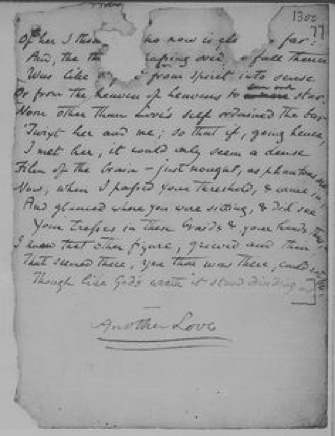 1300
77
Of her I thou no now is gl far:
And, the th passing over, a fall thence
Was like a from spirit into sense
Or from the heaven of heavens to star
None other than Love's self ordained the bar
'Twixt her and me; so that if, going hence,
I met her, it could only seem a dense
Film of the brain – just nought, as phantoms are.
Now, when I passed your threshold, & came in
And glanced where you were sitting, & did see
Your tresses in these braids & your hands thus,
I knew that other figure, grieved and thin
That seemed there, yea that was there, could not be
Though like God's wrath it stood dividing us
Another Love